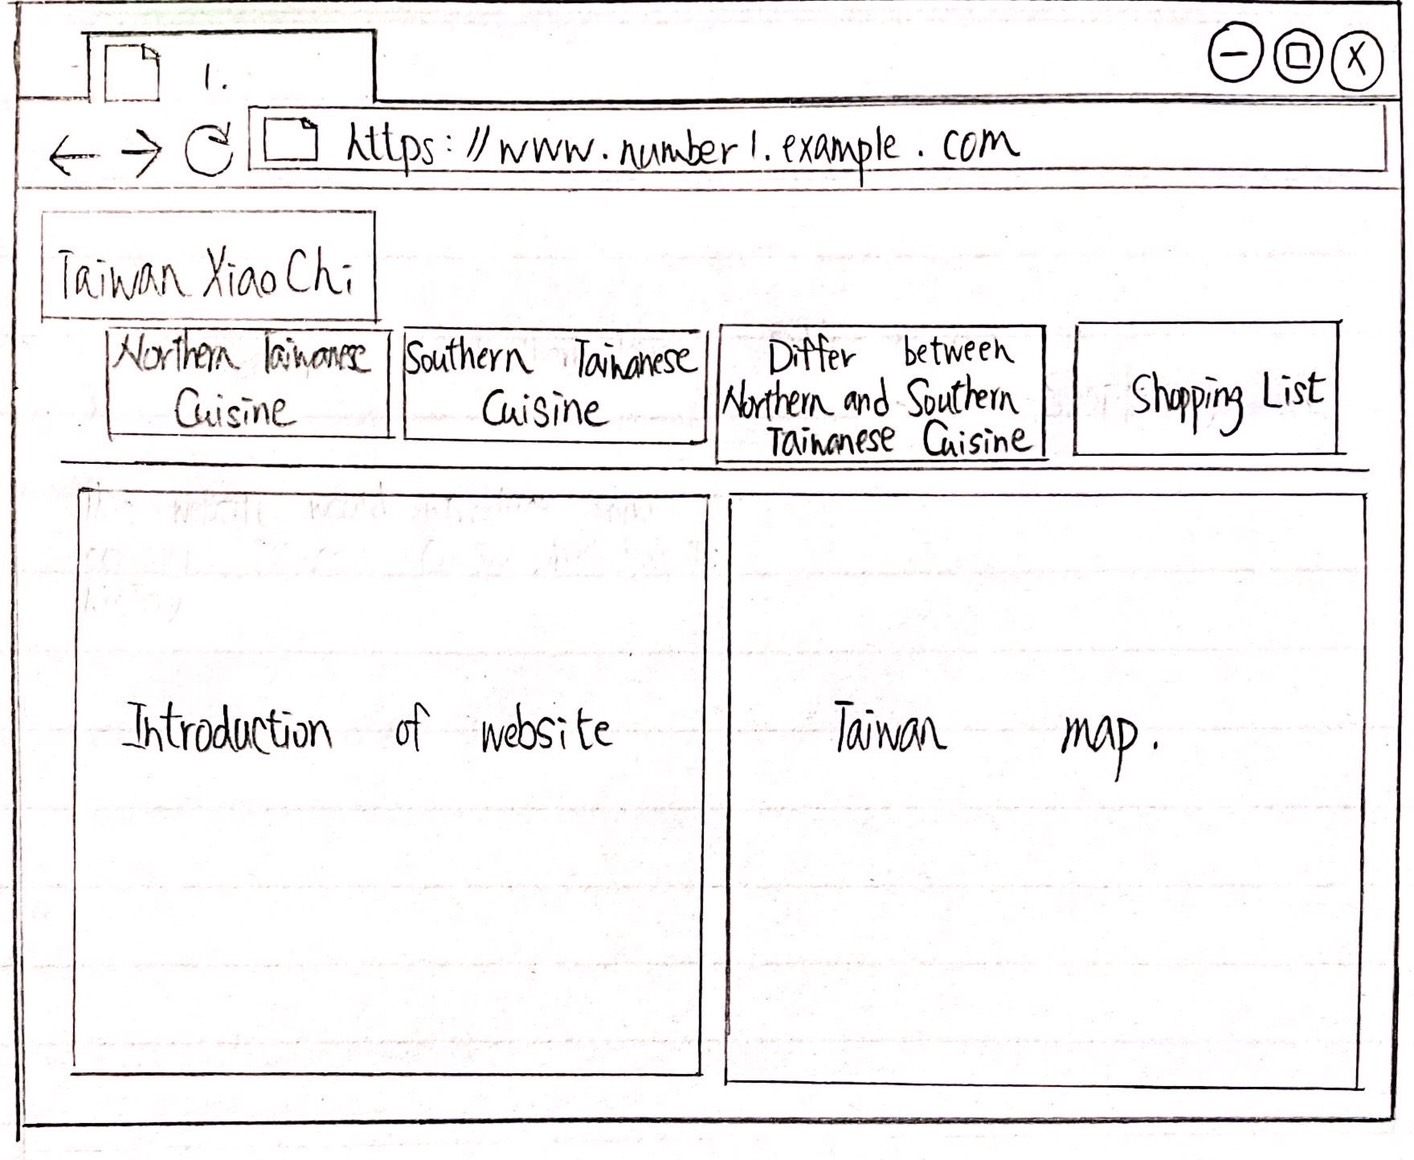 1.
https://www.number1.example.com
Taiwan XiaoChi
Northern Taiwanese
Cuisine
Southern Taiwanese
Cuisine
Differ between
Northern and Southern
Taiwanese Cuisine
Shopping List
Introduction of website
Taiwan map.